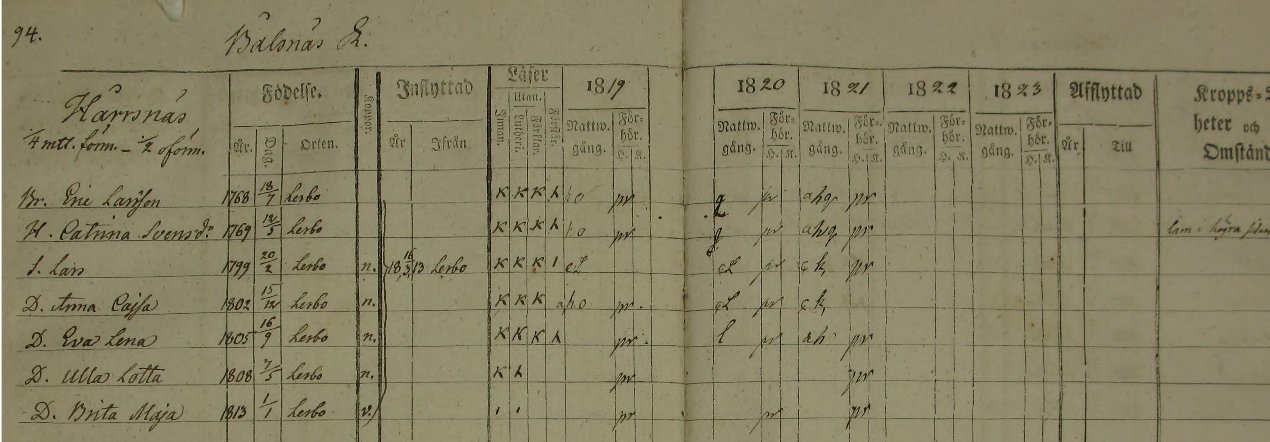 94.
Bälsnäs L.
Härrsnäs
1/4 mtl. förm. – 1/2 oförm.
Födelse. Koppor. Inflyttad Läser 1819 1820 1821 1822 1823 Afflyttad Kropps-
Utan. heter och
År. Dag. Orten. År Ifrån Innan. Förstår. Nattw. gång. För-hör. H. K. Nattw. gång. För-hör. H. K. Nattw. gång. För-hör. H. K. Nattw. gång. För-hör. H. K. Nattw. gång. För-hör. H. K. År Till Omständ
Br. Eric Larsson 1768 18/7 Lerbo K K K pr g pr ahg pr
H. Catrina Svensdr 1769 12/5 Lerbo K K K pr g pr ahg pr lam i högra
S. Lars 1799 20/2 Lerbo n. 18 16/3 13 Lerbo K K K cL cL pr ck pr
D. Anna Cajsa 1802 15/12 Lerbo n. K K K pr cL pr ck
D. Eva Lena 1805 16/9 Lerbo n. K K K pr l pr ah pr
D. Ulla Lotta 1808 7/5 Lerbo n. K pr pr
D. Brita Maja 1813 1/1 Lerbo v. pr pr pr